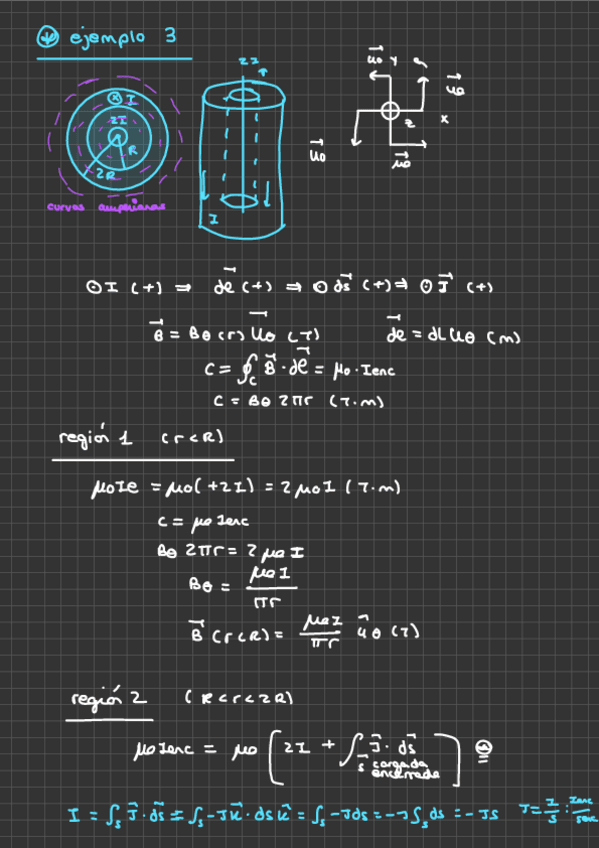 ejemplo 3
2I
ⓧ I
2I
R
2R
curvas amperianas
I
u⃗θ y
u⃗θ
x
z
u⃗θ
u⃗θ
⊙ I (+) ⇒ dl⃗ (+) ⇒ ⊙ ds⃗ (+) ⇒ ⊙ J⃗ (+)
B⃗ = Bθ (r) u⃗θ (T) dl⃗ = dl uθ (m)
C = ∮c B⃗ · dl⃗ = μ0 · Ienc
C = Bθ 2πr (T·m)
región 1 (r<R)
μ0Ie = μ0(+2I) = 2μ0I (T·m)
C = μ0 Ienc
Bθ 2πr = 2μ0I
Bθ = μ0I / πr
B⃗ (r<R) = μ0I / πr u⃗θ (T)
región 2 (R<r<2R)
μ0Ienc = μ0 [2I + ∫s J⃗ · ds⃗]
cargada
encerrada
I = ∫s J⃗·ds⃗ = ∫s -Jk⃗ · ds k⃗ = ∫s -Jds = -J∫s ds = -JS J = I/S : Ienc/Senc